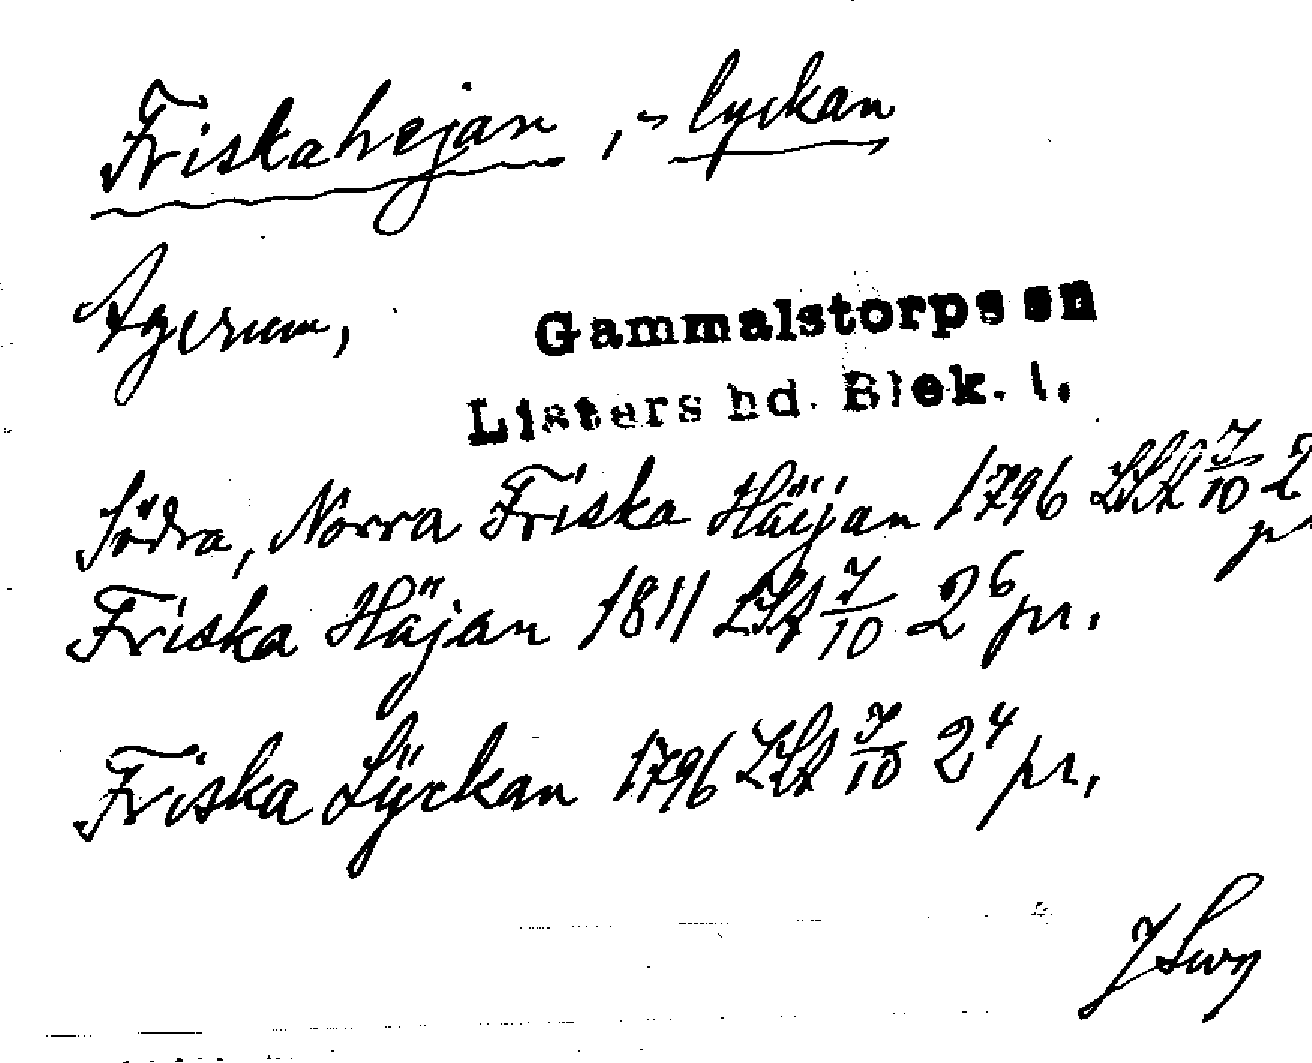 Friskahejan, -lyckan
Agerum,
Gammalstorps sn
Listers hd. Blek. l.
Södra, Norra Friska Häijan 1796 LSA 7/10 2
pr
Friska Häjan 1811 LSA 7/10 2⁶ pr.
Friska Lÿckan 1796 LSA 7/10 2⁴ pr.